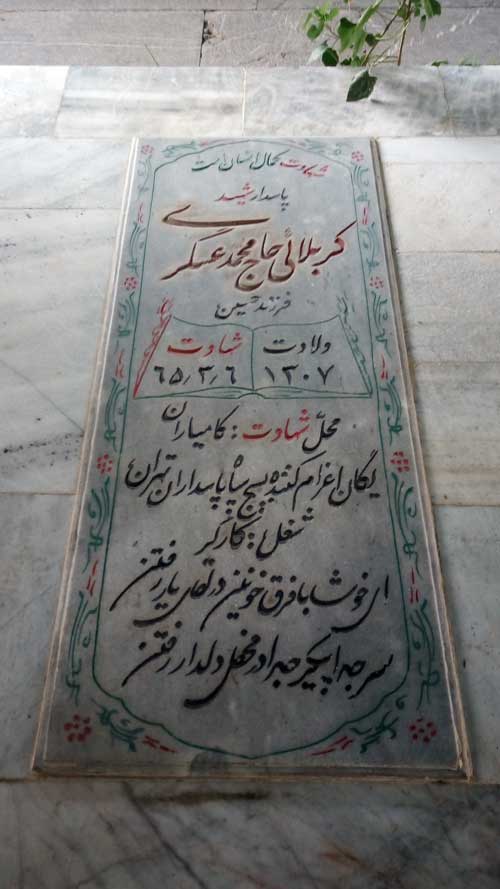 شهادت کمال انسان است
پاسدار شهید
کربلائی حاج محمد عسگری
فرزند حسین
ولادت شهادت
۱۳۰۷ ۶۵/۳/۶
محلّ شهادت : کامیاران
یگان اعزام کننده بسیج سپاه پاسداران تهران
شغل : کارگر
ای خوشا با فرق خونین در لقای یار رفتن
سر جدا پیکر جدا در محفل دلدار رفتن